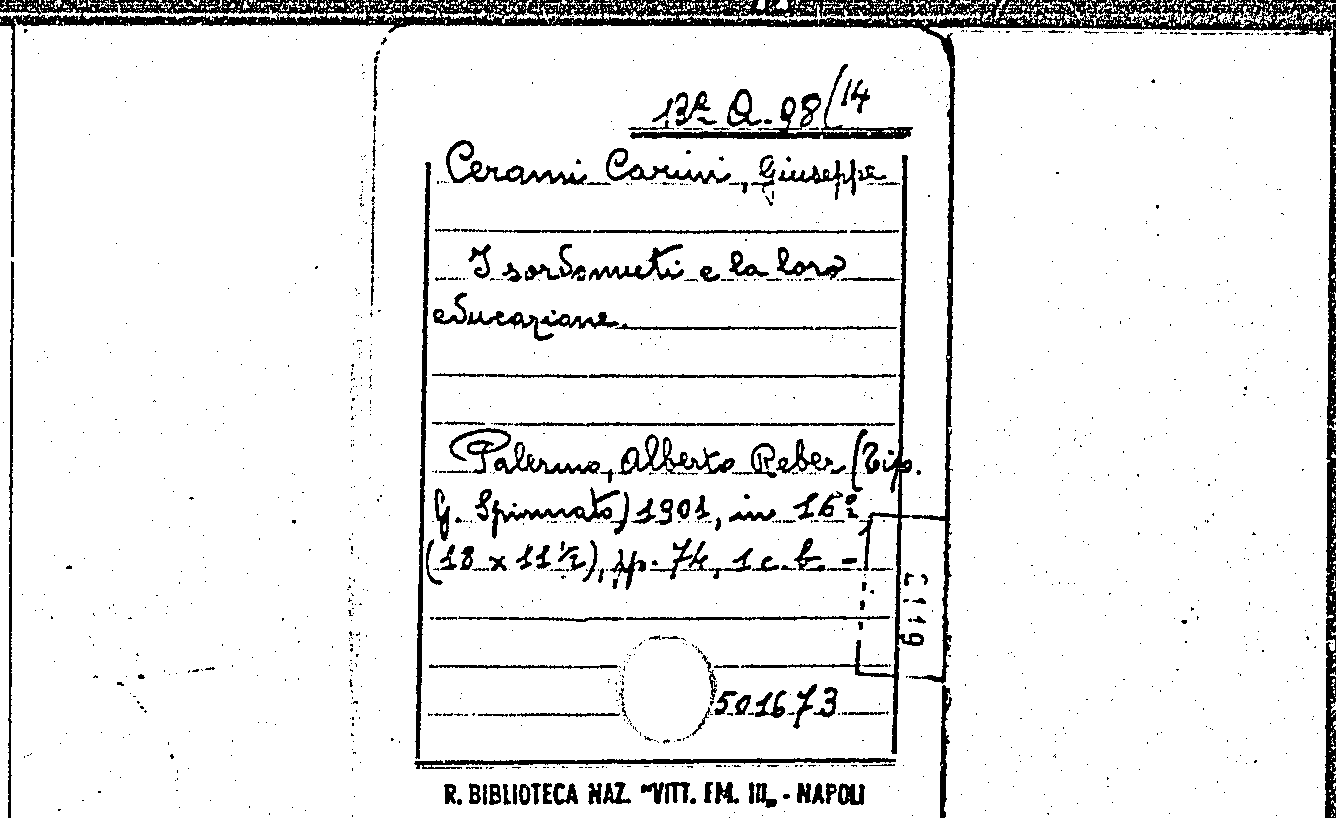 13ª Q. 98(14
Cerami Carini, Giuseppe
I sordomuti e la loro
educazione.
Palermo, Alberto Reber (Tip.
G. Spinnato) 1901, in 16º
(18 x 11 ½), pp. 74, 1 c. b. -
501673
R. BIBLIOTECA NAZ. "VITT. EM. III„ - NAPOLI